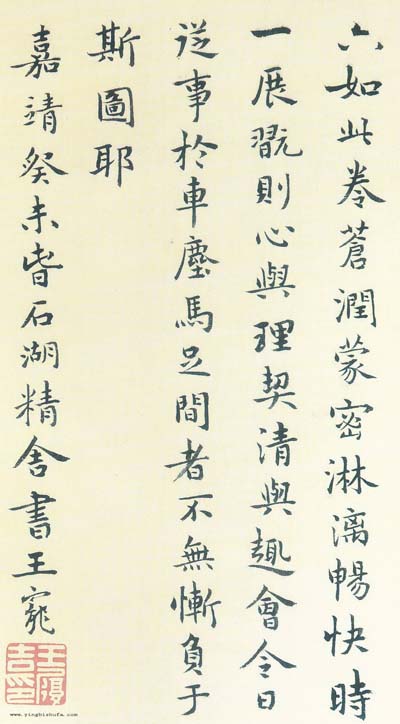 六如此卷蒼潤蒙密淋漓暢快時
一展翫則心與理契清與趣會今日
從事於車塵馬足間者不無慚負于
斯圖耶
嘉靖癸未旹石湖精舍書王寵
王履吉印
www.yingbishufa.com